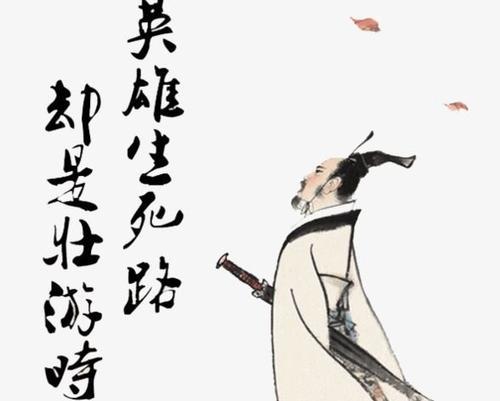 英雄生死路
却是壮游時